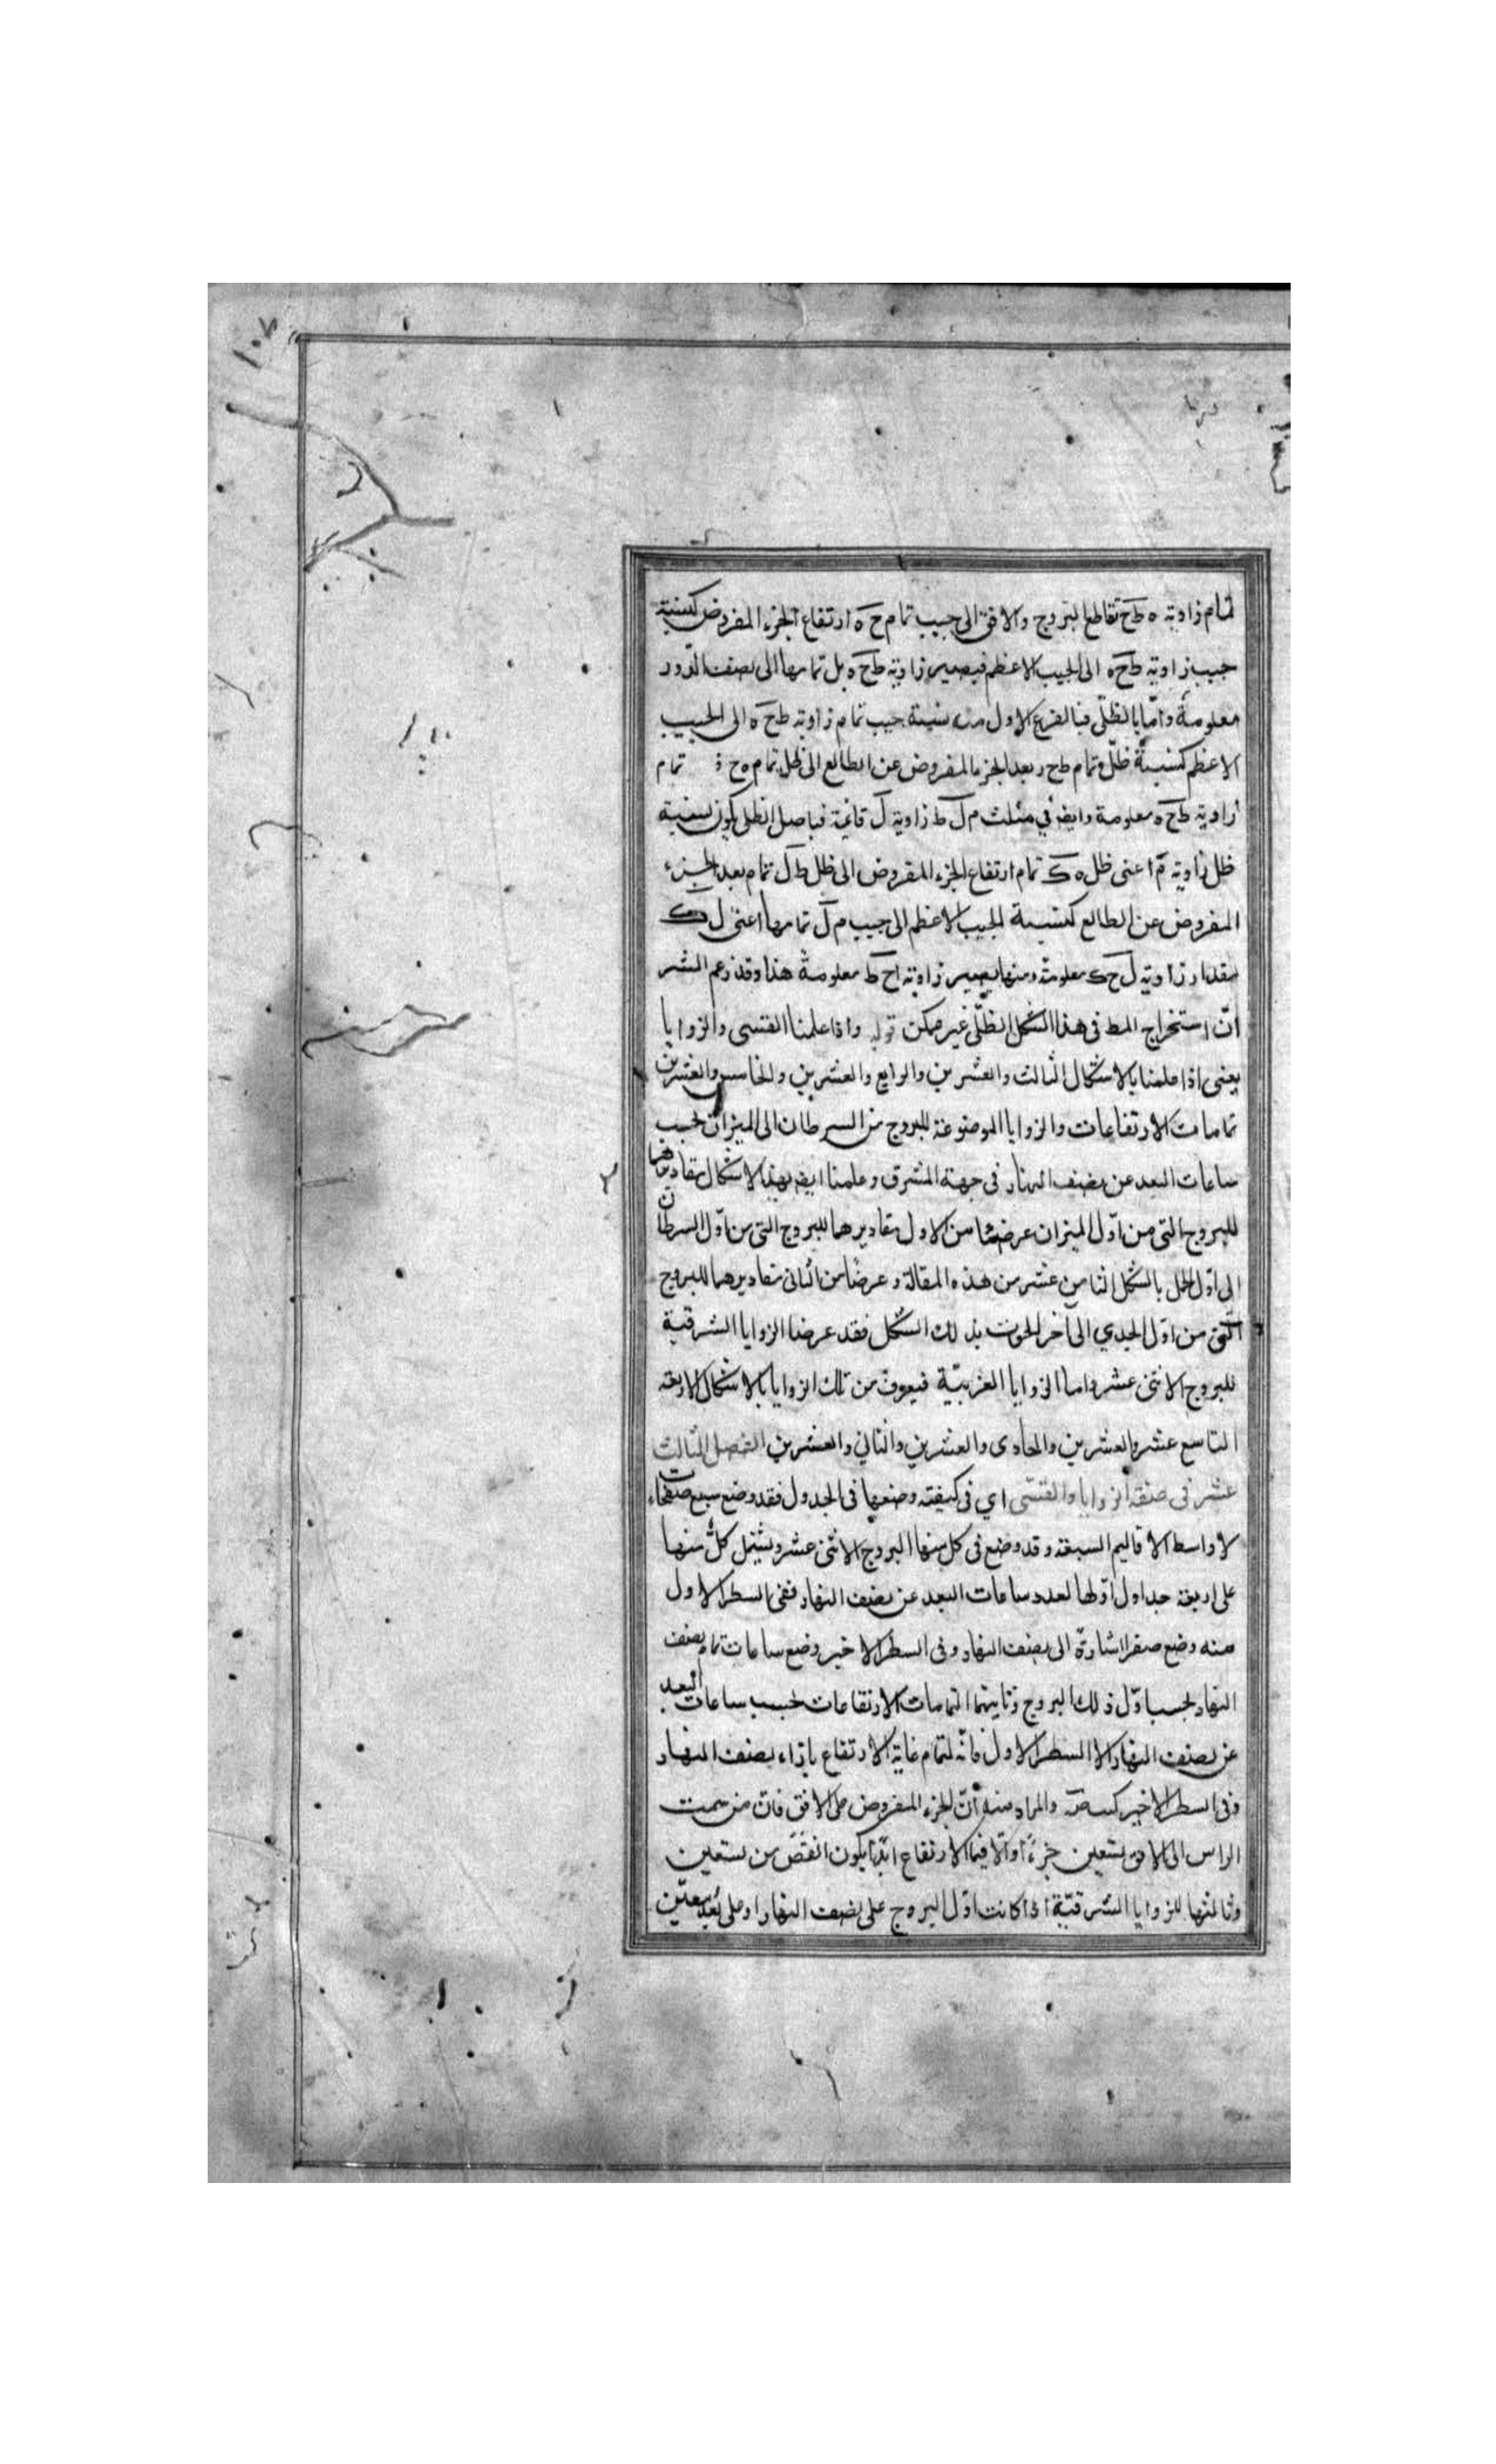 ١٠٧
لتمام زاوية ه ط ح تقاطع البروج والافق الى جيب تمام ح ه ارتفاع الجزء المفروض كنسبة
جيب زاوية ط ح ه الى الجيب الاعظم فيصير زاوية ط ح ه بل تمامها الى نصف الدور
معلومة وامّا بالظلّى فبالفرع الاول منه نسبة جيب تمام زاوية ط ح ه الى الجيب
الاعظم كنسبة ظلّ تمام ط ح بعد الجزء المفروض عن الطالع الى ظل تمام ه ح تمام
زاوية ط ح ه معلومة وايضا في مثلث م ل ط زاوية ل قائمة فباصل الظلى يكون نسبة
ظل زاوية م اعنى ظل ه ك تمام ارتفاع الجزء المفروض الى ظل ط ل تمام بعد الجزء
المفروض عن الطالع كنسبة الجيب الاعظم الى جيب م ل تمامها اعنى ل ك
مقدار زاوية ل ح ك معلومة ومنها يصير زاوية ا ح ط معلومة هذا وقد زعم الشر
انّ استخراج المط فى هذا الشكل بالظلّى غير ممكن قوله واذا علمنا القسى والزوايا
يعنى اذا علمنا بالاشكال الثالث والعشرين والرابع والعشرين والخامس والعشرين
تمامات الارتفاعات والزوايا الموضوعة للبروج من السرطان الى الميزان بحسب
ساعات البعد عن نصف النهار فى جهة المشرق وعلمنا ايضا بهذه الاشكال مقاديرهما
للبروج التى من اوّل الميزان عرضنا من الاول مقاديرهما للبروج التى من اوّل السرطان
الى اوّل الحمل بالشكل الثامن عشر من هذه المقالة وعرضنا من الثانى مقاديرهما للبروج
التى من اوّل الجدي الى آخر الحوت بذلك الشكل فقد عرضنا الزوايا الشرقية
للبروج الاثنى عشر واما الزوايا الغربيّة فيعرف من تلك الزوايا بالاشكال الاربعة
التاسع عشر والعشرين والحادى والعشرين والثاني والعشرين الفصل الثالث
عشر فى صنفة الزوايا والقسّى اي فى كيفيّة وضعها فى الجدول فقد وضع سبع صفحات
لاواسط الاقاليم السبعة وقد وضع فى كل منها البروج الاثنى عشر ويشتمل كلّ منها
على اربعة جداول اوّلها لعدد ساعات البعد عن نصف النهار ففى السطر الاول
منه وضع صفرا اشارة الى نصف النهار وفى السطر الاخير وضع ساعات تمام نصف
النهار بحسب اوّل ذلك البروج وثانيتها لتمامات الارتفاعات بحسب ساعات البعد
عن نصف النهار الا السطر الاول فانّه لتمام غاية الارتفاع بازاء نصف النهار
وفى السطر الاخير كتب صَ والمراد منه أنّ الجزء المفروض على الافق فانّ من سمت
الراس الى الافق تسعين جزءًا والّا فيما الارتفاع ابدًا يكون انقص من تسعين
وثالثها للزوايا الشرقيّة اذا كانت اوّل البروج على نصف النهار او على بُعد معيّن